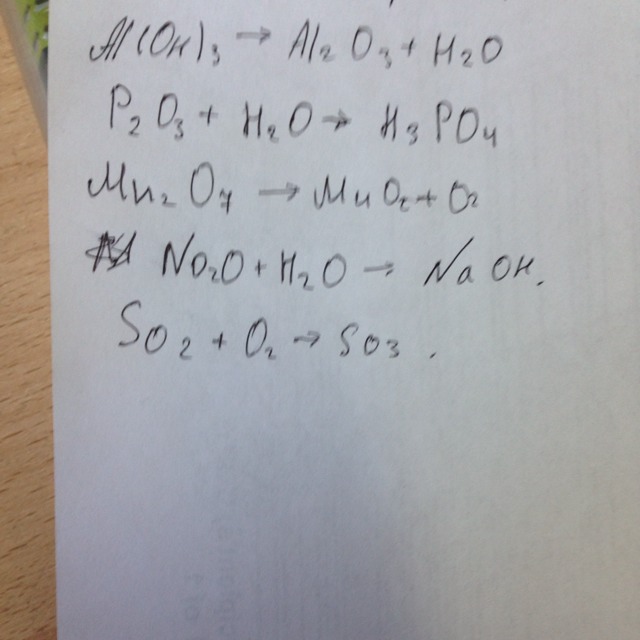 Al(OH)₃ → Al₂O₃ + H₂O
P₂O₃ + H₂O → H₃PO₄
Mn₂O₇ → MnO₂ + O₂
Na₂O + H₂O → NaOH.
SO₂ + O₂ → SO₃.